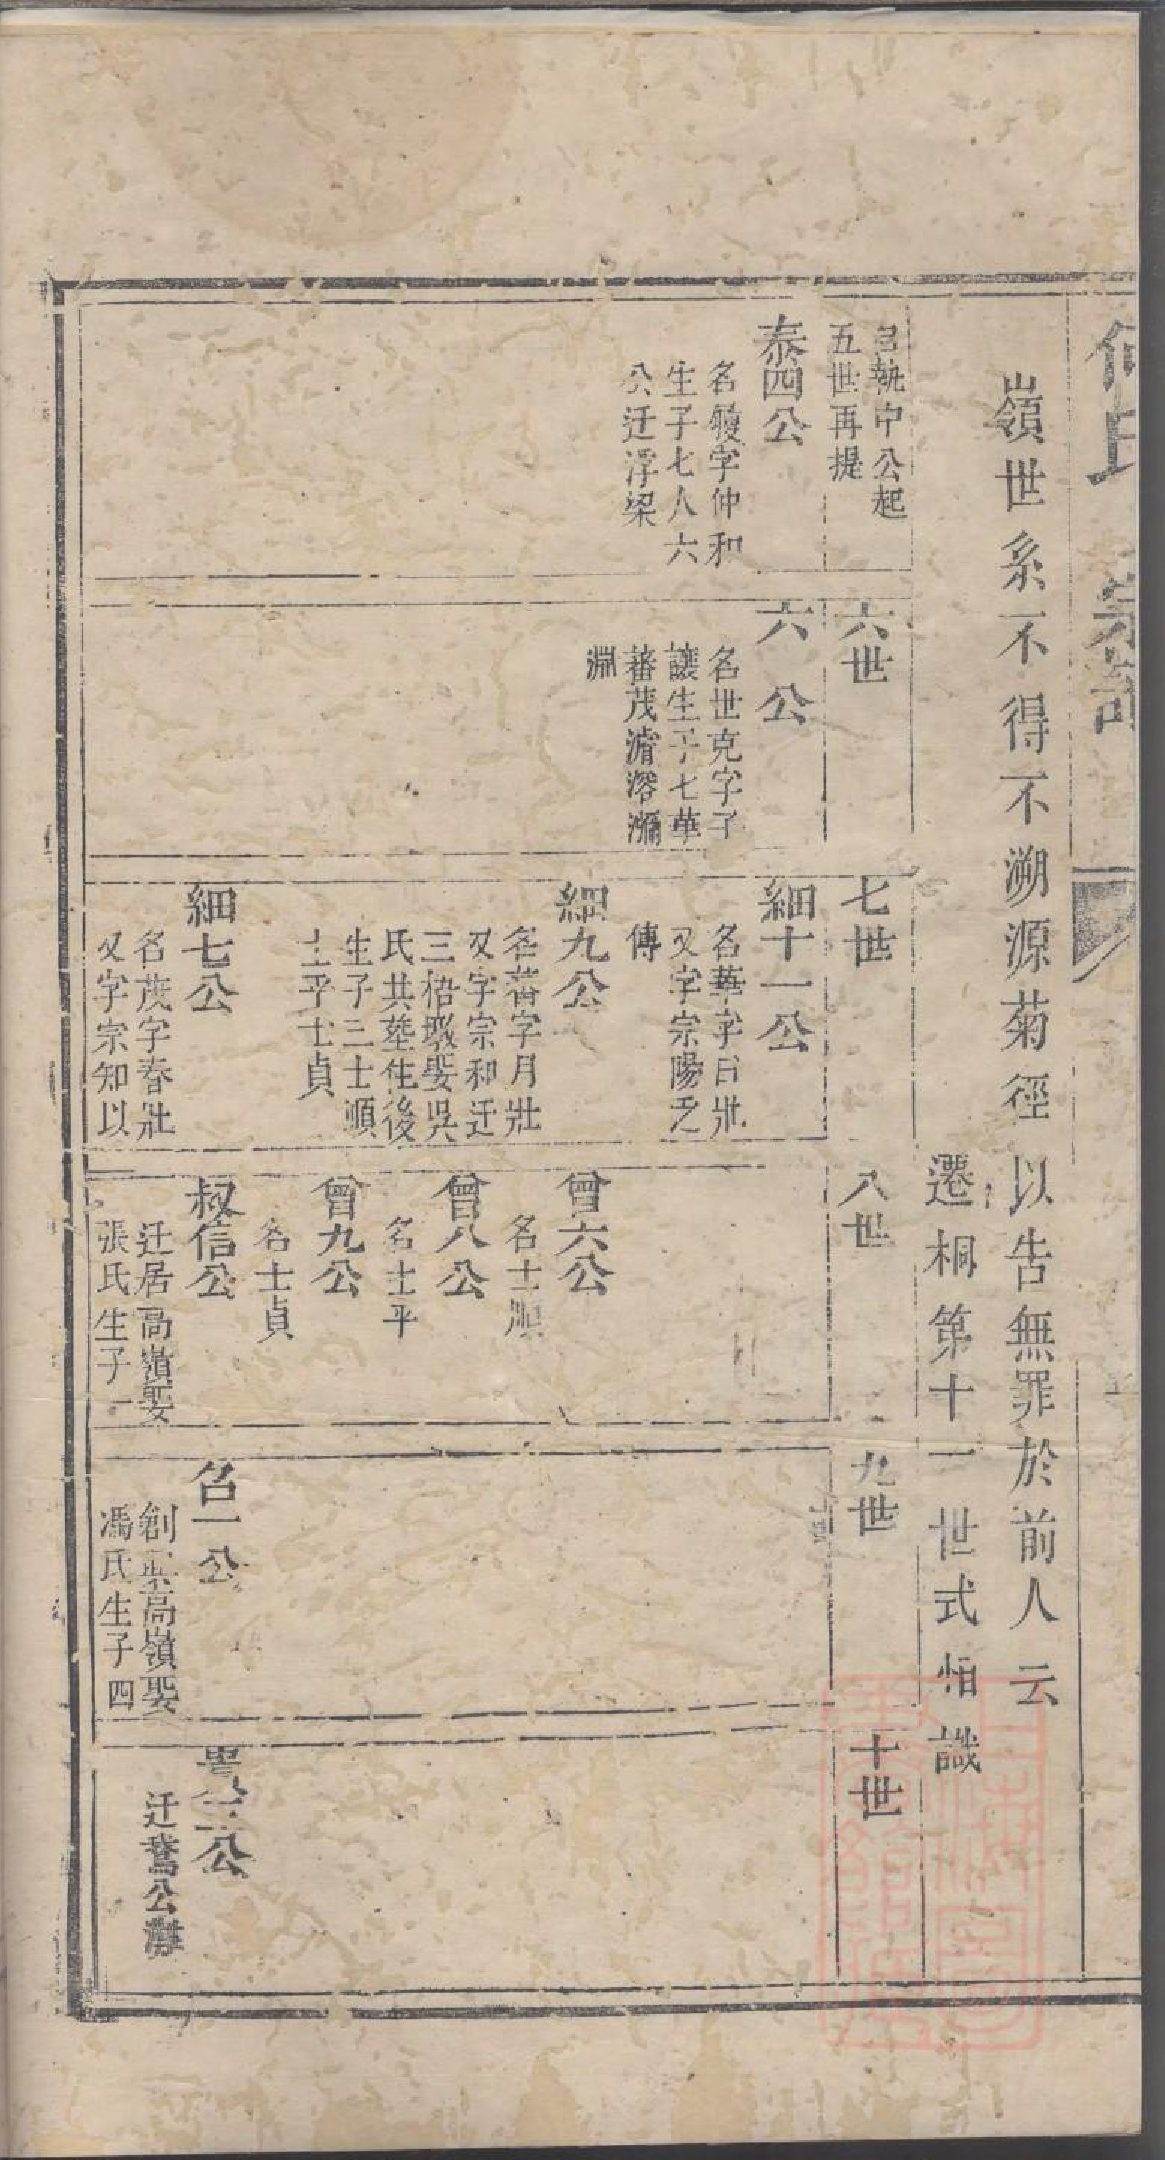 何氏宗譜
嶺世系不得不溯源菊徑以告無罪於前人云
遷桐第十一世式怡識
自執中公起
五世再提
泰四公
名馥字仲和
生子七人六
公迁浮梁
六世
六公
名世克字子
讓生子七華
蕃茂濬溶瀰
淵
七世
細十一公
名華字日壯
又字宗陽乏
傳
細九公
名蕃字月壯
又字宗和迁
三梧墩娶吳
氏共塟住後
生子三士順
士平士貞
細七公
名茂字春壯
又字宗知以
八世
曾六公
名士順
曾八公
名士平
曾九公
名士貞
叔信公
迁居高嶺娶
張氏生子一
九世
召一公
創業高嶺娶
馮氏生子四
十世
貴二公
迁鵞公灘